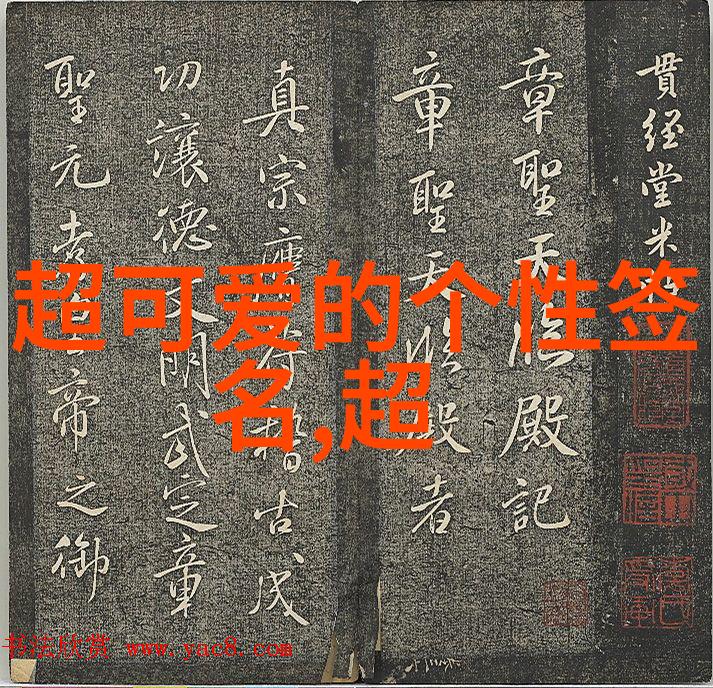 超可爱的个性签
名,超
貫经堂米
章聖天臨殿記
章聖天臨殿者
真宗膺符稽古成
功讓德文明武定章
聖元孝皇帝之御
书法欣赏 www.yac8.com